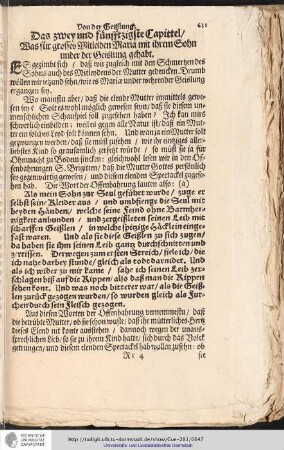 Von der Geißlung. 631
Das zwey und fünfftzigste Capittel/
Was für grosses Mitleiden Maria mit ihrem Sohn
under der Geislung gehabt.
ES gezimbt sich / daß wir zugleich mit den Schmertzen des
Sohns auch des Mitleydens der Mutter gedencken. Drumb
wöllen wir jetzund sehn/wie es Maria under wehrender Geislung
ergangen sey.
Wo mainstu aber/ daß die elende Mutter immittels gewe-
sen sey? Solt es wohl möglich gewesen sein/ daß sie disem un-
menschlichen Schauspiel soll zugesehen haben? Ich kan mirs
schwerlich einbilden: weil es gegen alle Natur ist/ daß ein Mut-
ter ein solches Leyd solt können sehn. Und wan ja ein Mutter solt
gezwungen werden/ daß sie müst zusehen/ wie ihr einziges aller-
liebstes Kind so grausamlich zersetzt würde/ so müst sie ja für
Ohnmacht zu Boden sincken: gleichwohl lesen wir in den Of-
fenbahrungen S. Brigitten/ daß die Mutter Gottes persönlich
sey gegenwärtig gewesen/ und disem elenden Spectackel zugese-
hen hab. Die Wort der Offenbahrung lauten also: (a)
Als mein Sohn zur Seul geführt wurde/ zoge er
selbst sein Kleider aus/ und umbfienge die Seul mit
beyden Händen/ welche seine Feind ohne Barmher-
tzigkeit anbunden/ und zergeißleten seinen Leib mit
scharffen Geißlen/ in welche spitzige Häcklein einge-
fast waren. Und als sie diese Geißlen zu sich zogen/
da haben sie ihm seinen Leib gantz durchschnitten und
zerrissen. Derwegen zum ersten Streich/ fiele ich/ die
ich nahe darbey stunde/ gleich als todt darnider. Und
als ich wider zu mir kame/ sahe ich seinen Leib zer-
schlagen biß auf die Rippen/ also daß man die Rippen
sehen kont. Und was noch bitterer war/ als die Geiß-
len zurück gezogen wurden/ so wurden gleich als Fur-
chen durch sein Fleisch gezogen.
Aus disen Worten der Offenbahrung vernemmestu/ daß
die betrübte Mutter/ ob sie schon wuste/ daß ihr mütterliches Hertz
dises Elend nit kante ausstehen/ dannoch wegen der unaus-
sprechlichen Lieb/ so sie zu ihrem Kind hatte/ sich durch das Volck
getrungen/ und disem elenden Spectackel hab wöllen zusehen: ob
Rr 4 sie
http://tudigit.ulb.tu-darmstadt.de/show/Gue-281/0647
Universitäts- und Landesbibliothek Darmstadt